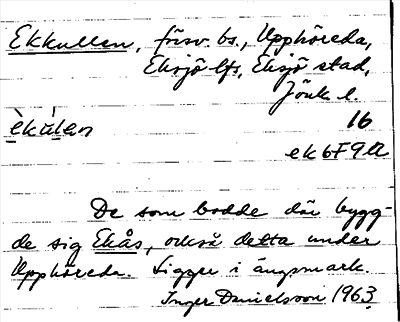 Ekkullen, försv. bs., Upphöreda,
Eksjö lfs, Eksjö stad,
Jönk l.
èkúlan 16
ek 6F9a
De som bodde där bygg-
de sig Ekås, också detta under
Upphöreda. Ligger i ängsmark.
Inger Danielsson 1963